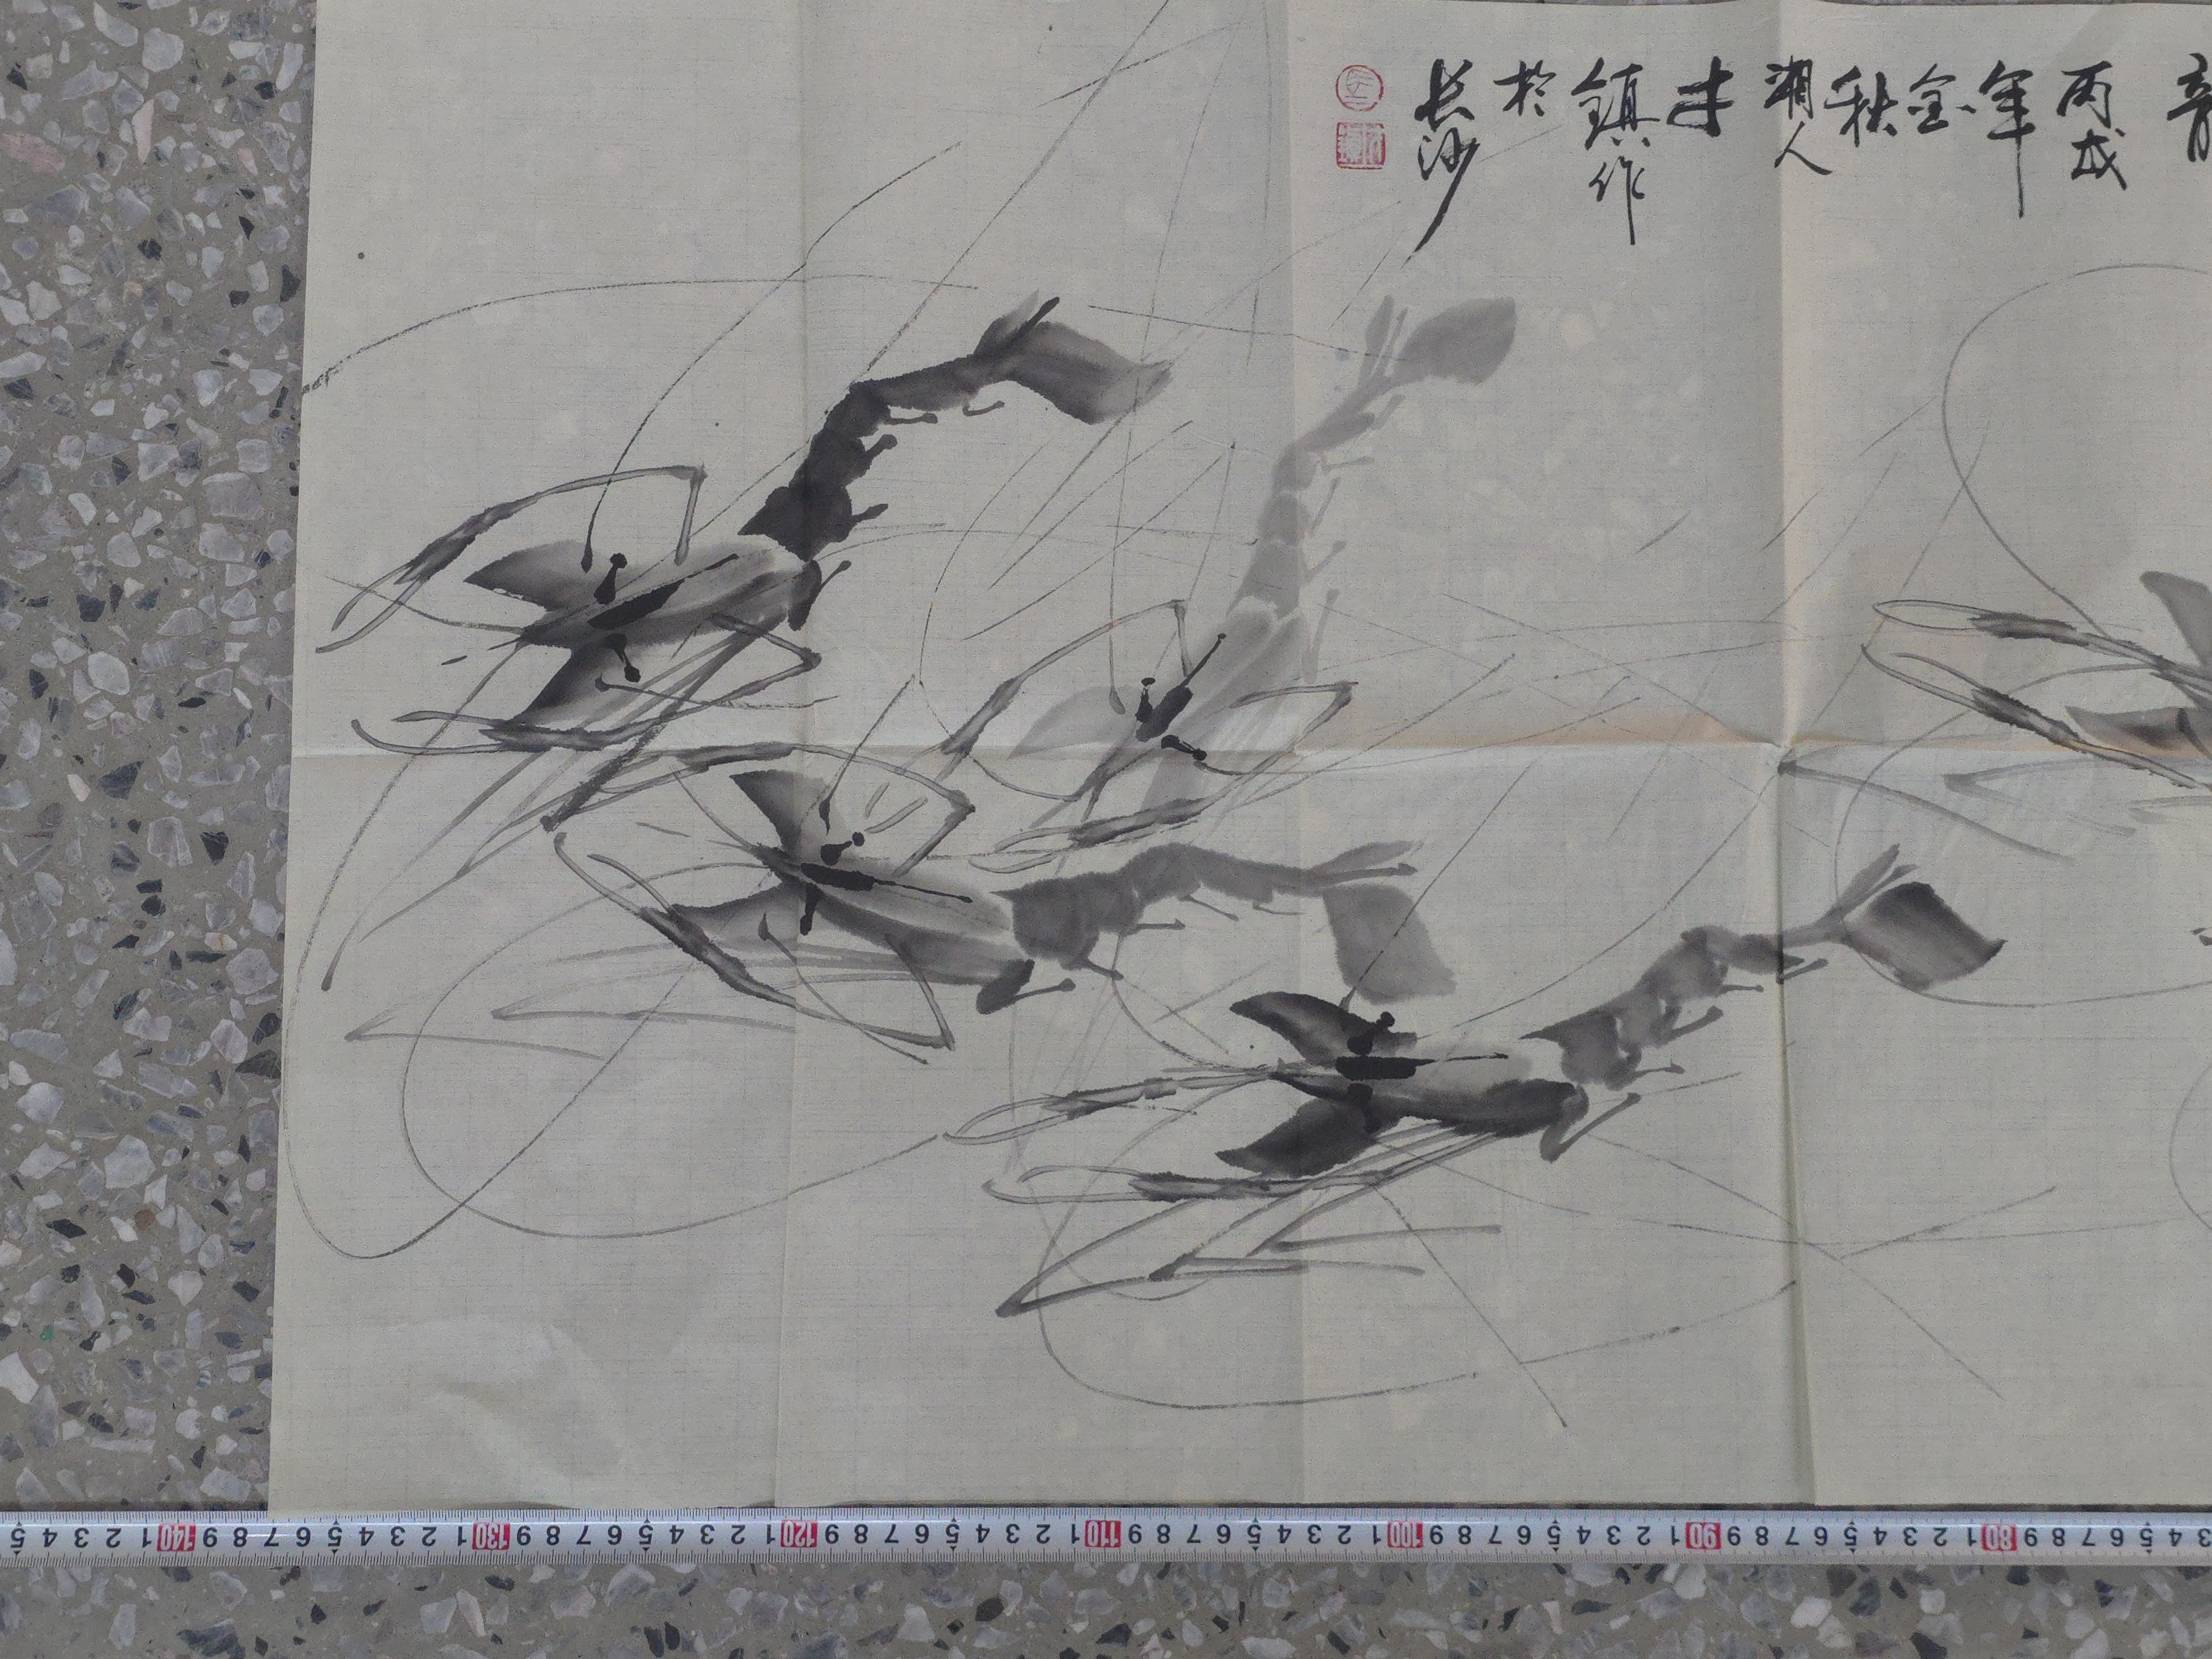 丙戌年金秋湘人鎮作於长沙
3 4 5 6 7 8 9 80 1 2 3 4 5 6 7 8 9 90 1 2 3 4 5 6 7 8 9 100 1 2 3 4 5 6 7 8 9 110 1 2 3 4 5 6 7 8 9 120 1 2 3 4 5 6 7 8 9 130 1 2 3 4 5 6 7 8 9 140 1 2 3 4 5